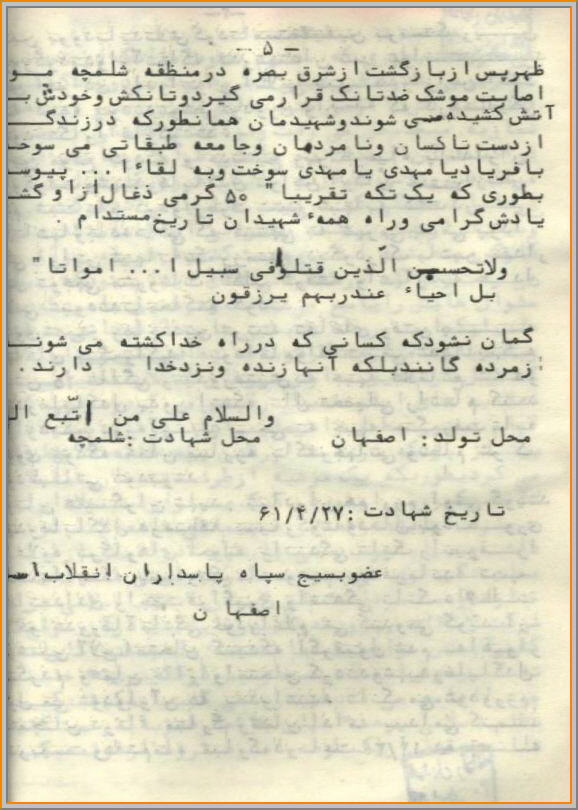 - ۵ -
ظهرپس ازبازگشت ازشرق بصره درمنطقه شلمچه مـو
اصابت موشک ضدتانک قرارمی گیردوتانکش وخودش بـ
آتش کشیده می شوندوشهیدمان همانطورکه درزندگـ
ازدست ناکسان ونامردمان وجامعه طبقاتی می سوخـ
بافریادیامهدی یامهدی سوخت وبه لقاءا... پیوسـ
بطوری که یک تکه تقریبا" ۵۰ گرمی ذغال ازاو گشـ
یادش گرامی وراه همهء شهیدان تاریخ مستدام .
ولاتحسبـن الّذین قتلوفی سبیل ا... امواتا"
بل احیاء عندربهم یرزقون
گمان نشودکه کسانی که درراه خداکشته می شونـد
زمرده گانندبلکه آنهازنده ونزدخدا دارند.
والسلام علی من اتّبع الـ
محل تولد: اصفهان محل شهادت :شلمچه
تاریخ شهادت :۶۱/۴/۲۷
عضوبسیج سپاه پاسداران انقلاب اسـ
اصفهان